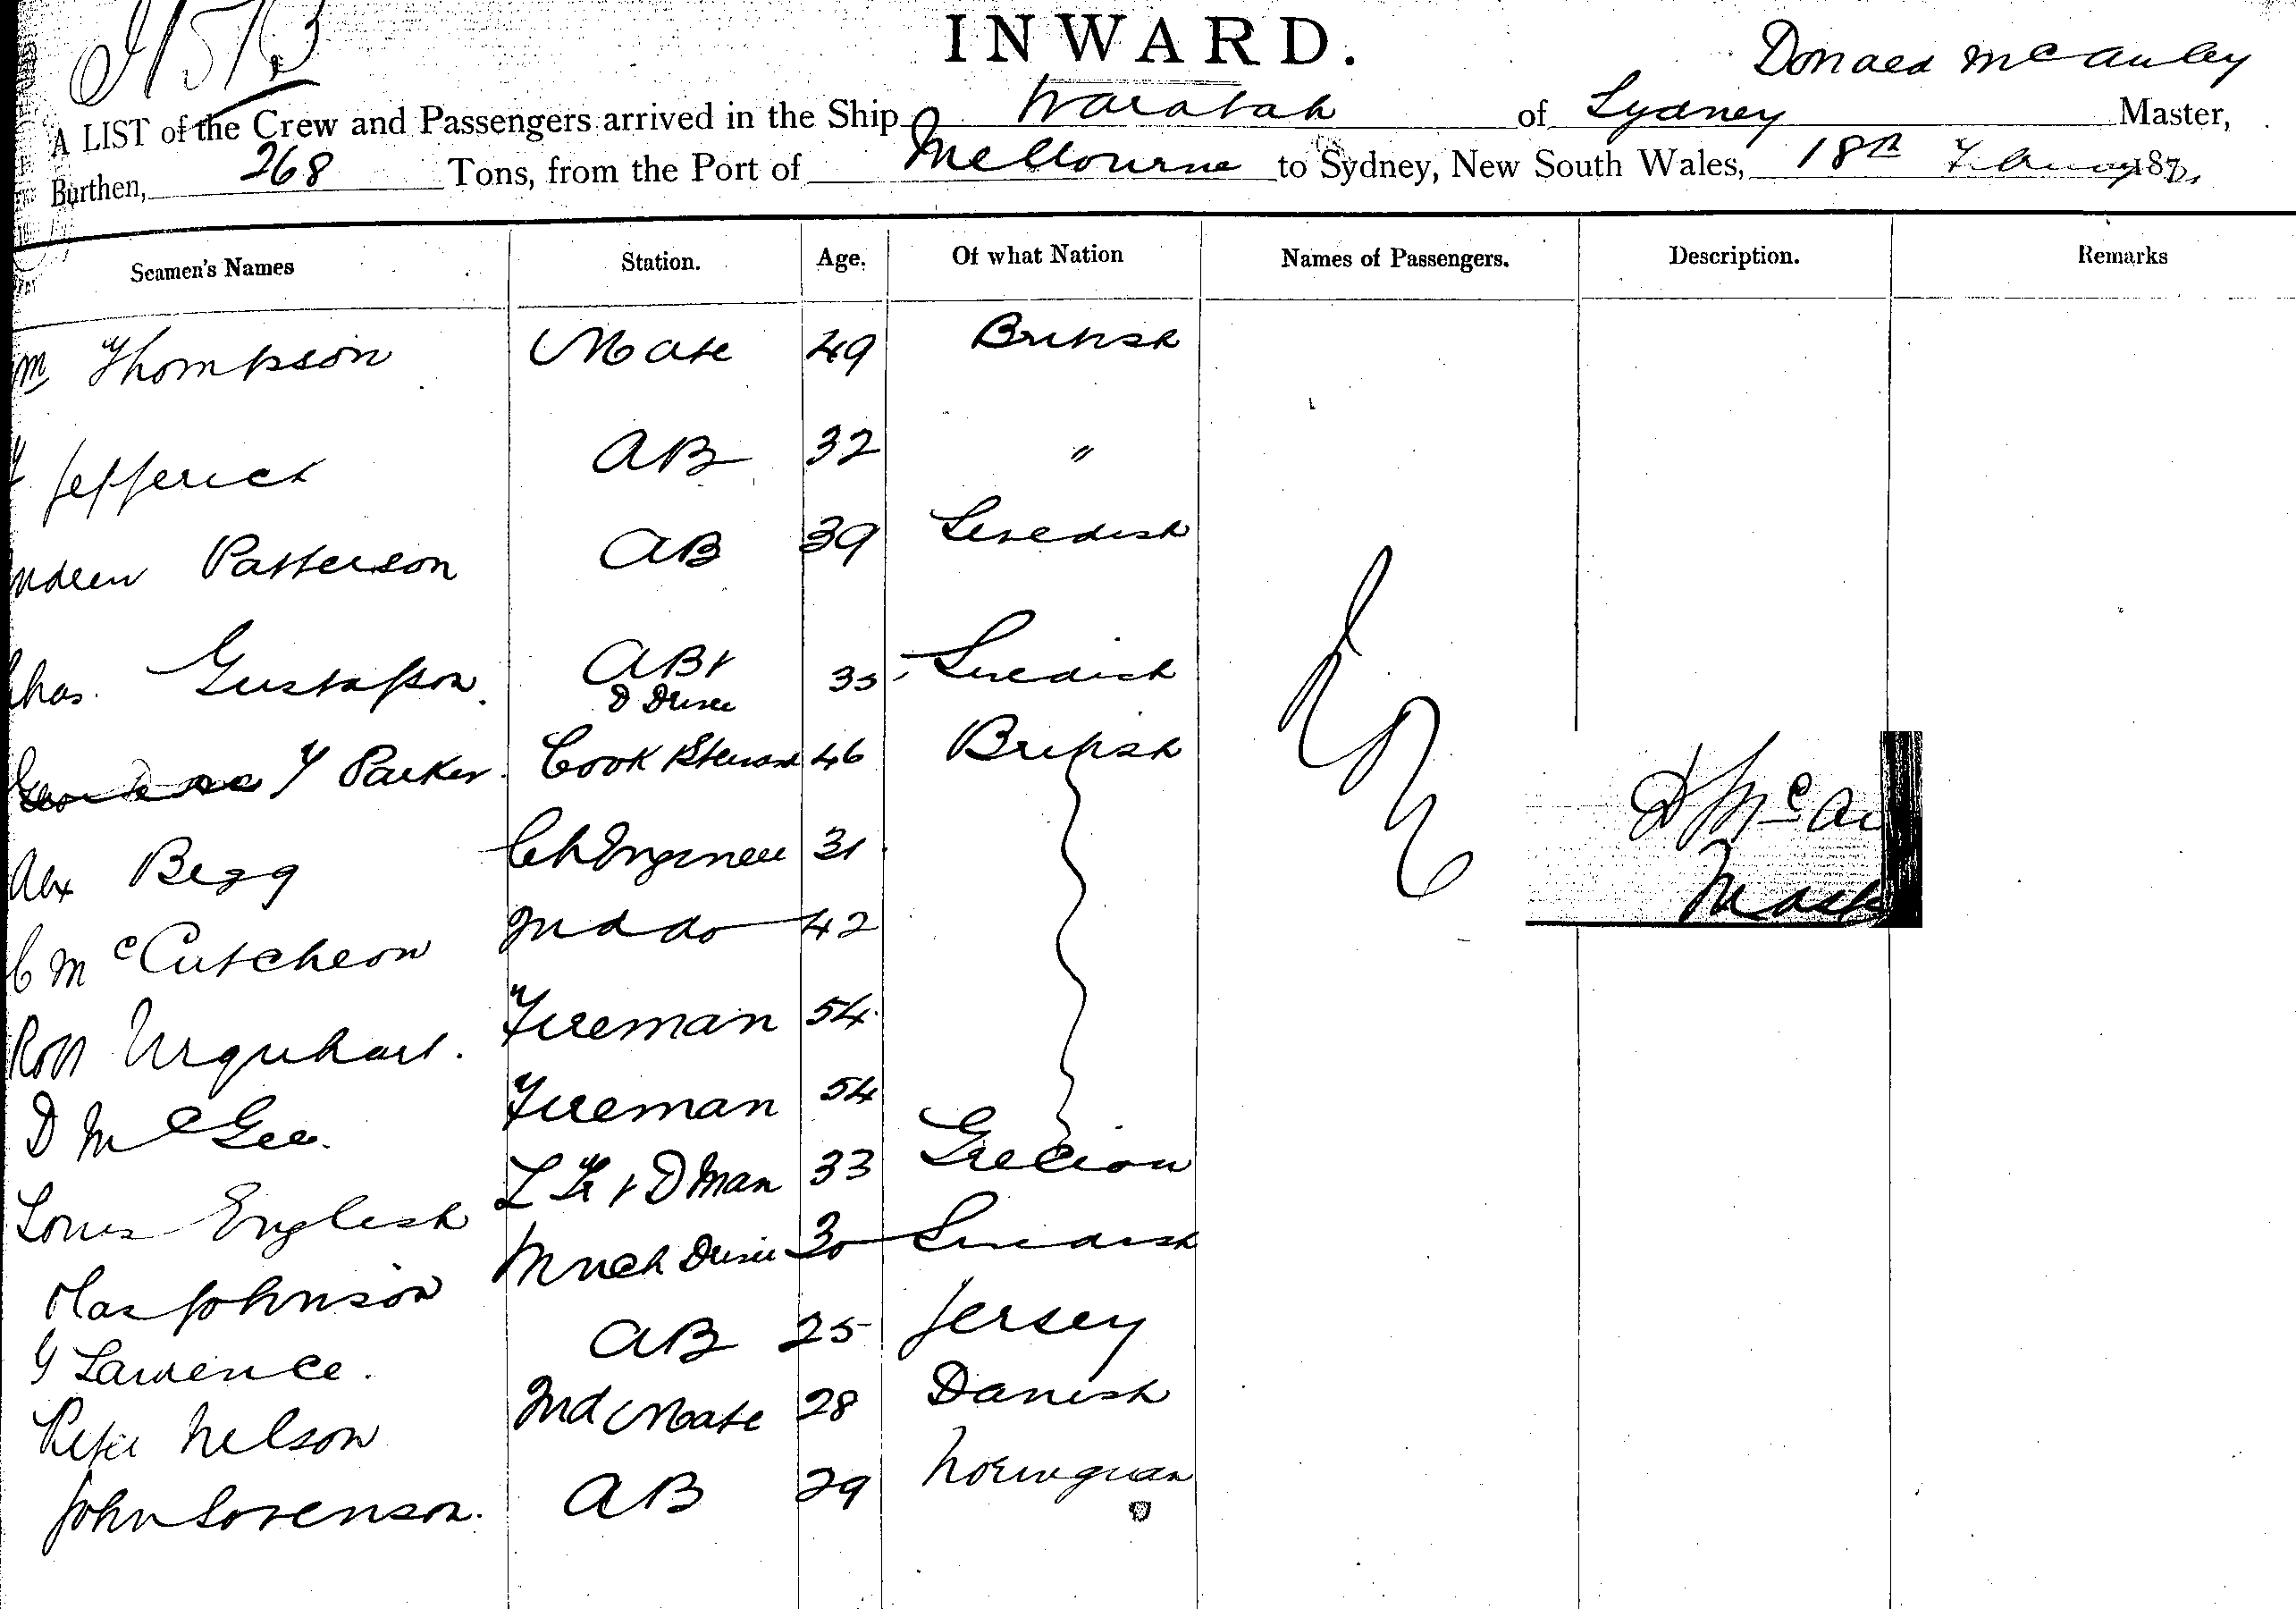 INWARD.
Donald McAuley
A LIST of the Crew and Passengers arrived in the Ship Waratah of Sydney Master,
Burthen, 268 Tons, from the Port of Melbourne to Sydney, New South Wales, 18th February 187
Seamen's Names Station. Age. Of what Nation Names of Passengers. Description. Remarks
m Thompson Mate 49 British
Jefferict AB 32 "
ndrew Patterson AB 39 Swedish
Chas. Gustafson. AB & 35 Swedish
D Driver
Y Parker Cook & Steward 46 British
Alex Begg Ch Engineer 31
C McCutcheon 2nd do 42
Robt Urquhart. Fireman 54
D McGee. Fireman 54
Louis English L Fr & D Man 33 Grecian
Olas Johnson Winch Driver 30 Swedish
G Lawrence. AB 25 Jersey
Peter Nelson 2nd Mate 28 Danish
John Sorenson. AB 29 Norwegian
D McAu
Mast